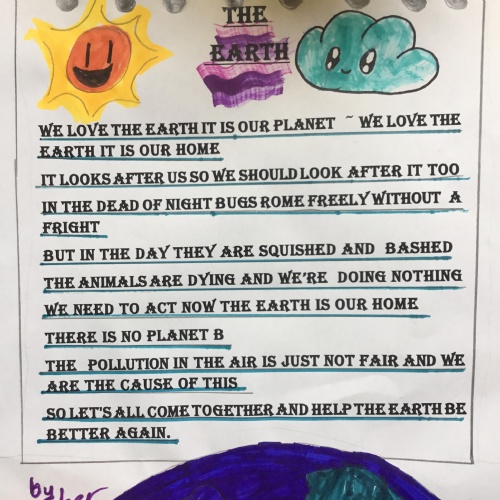 THE
EARTH
WE LOVE THE EARTH IT IS OUR PLANET ~ WE LOVE THE
EARTH IT IS OUR HOME
IT LOOKS AFTER US SO WE SHOULD LOOK AFTER IT TOO
IN THE DEAD OF NIGHT BUGS ROME FREELY WITHOUT A
FRIGHT
BUT IN THE DAY THEY ARE SQUISHED AND BASHED
THE ANIMALS ARE DYING AND WE'RE DOING NOTHING
WE NEED TO ACT NOW THE EARTH IS OUR HOME
THERE IS NO PLANET B
THE POLLUTION IN THE AIR IS JUST NOT FAIR AND WE
ARE THE CAUSE OF THIS
SO LET'S ALL COME TOGETHER AND HELP THE EARTH BE
BETTER AGAIN.
by